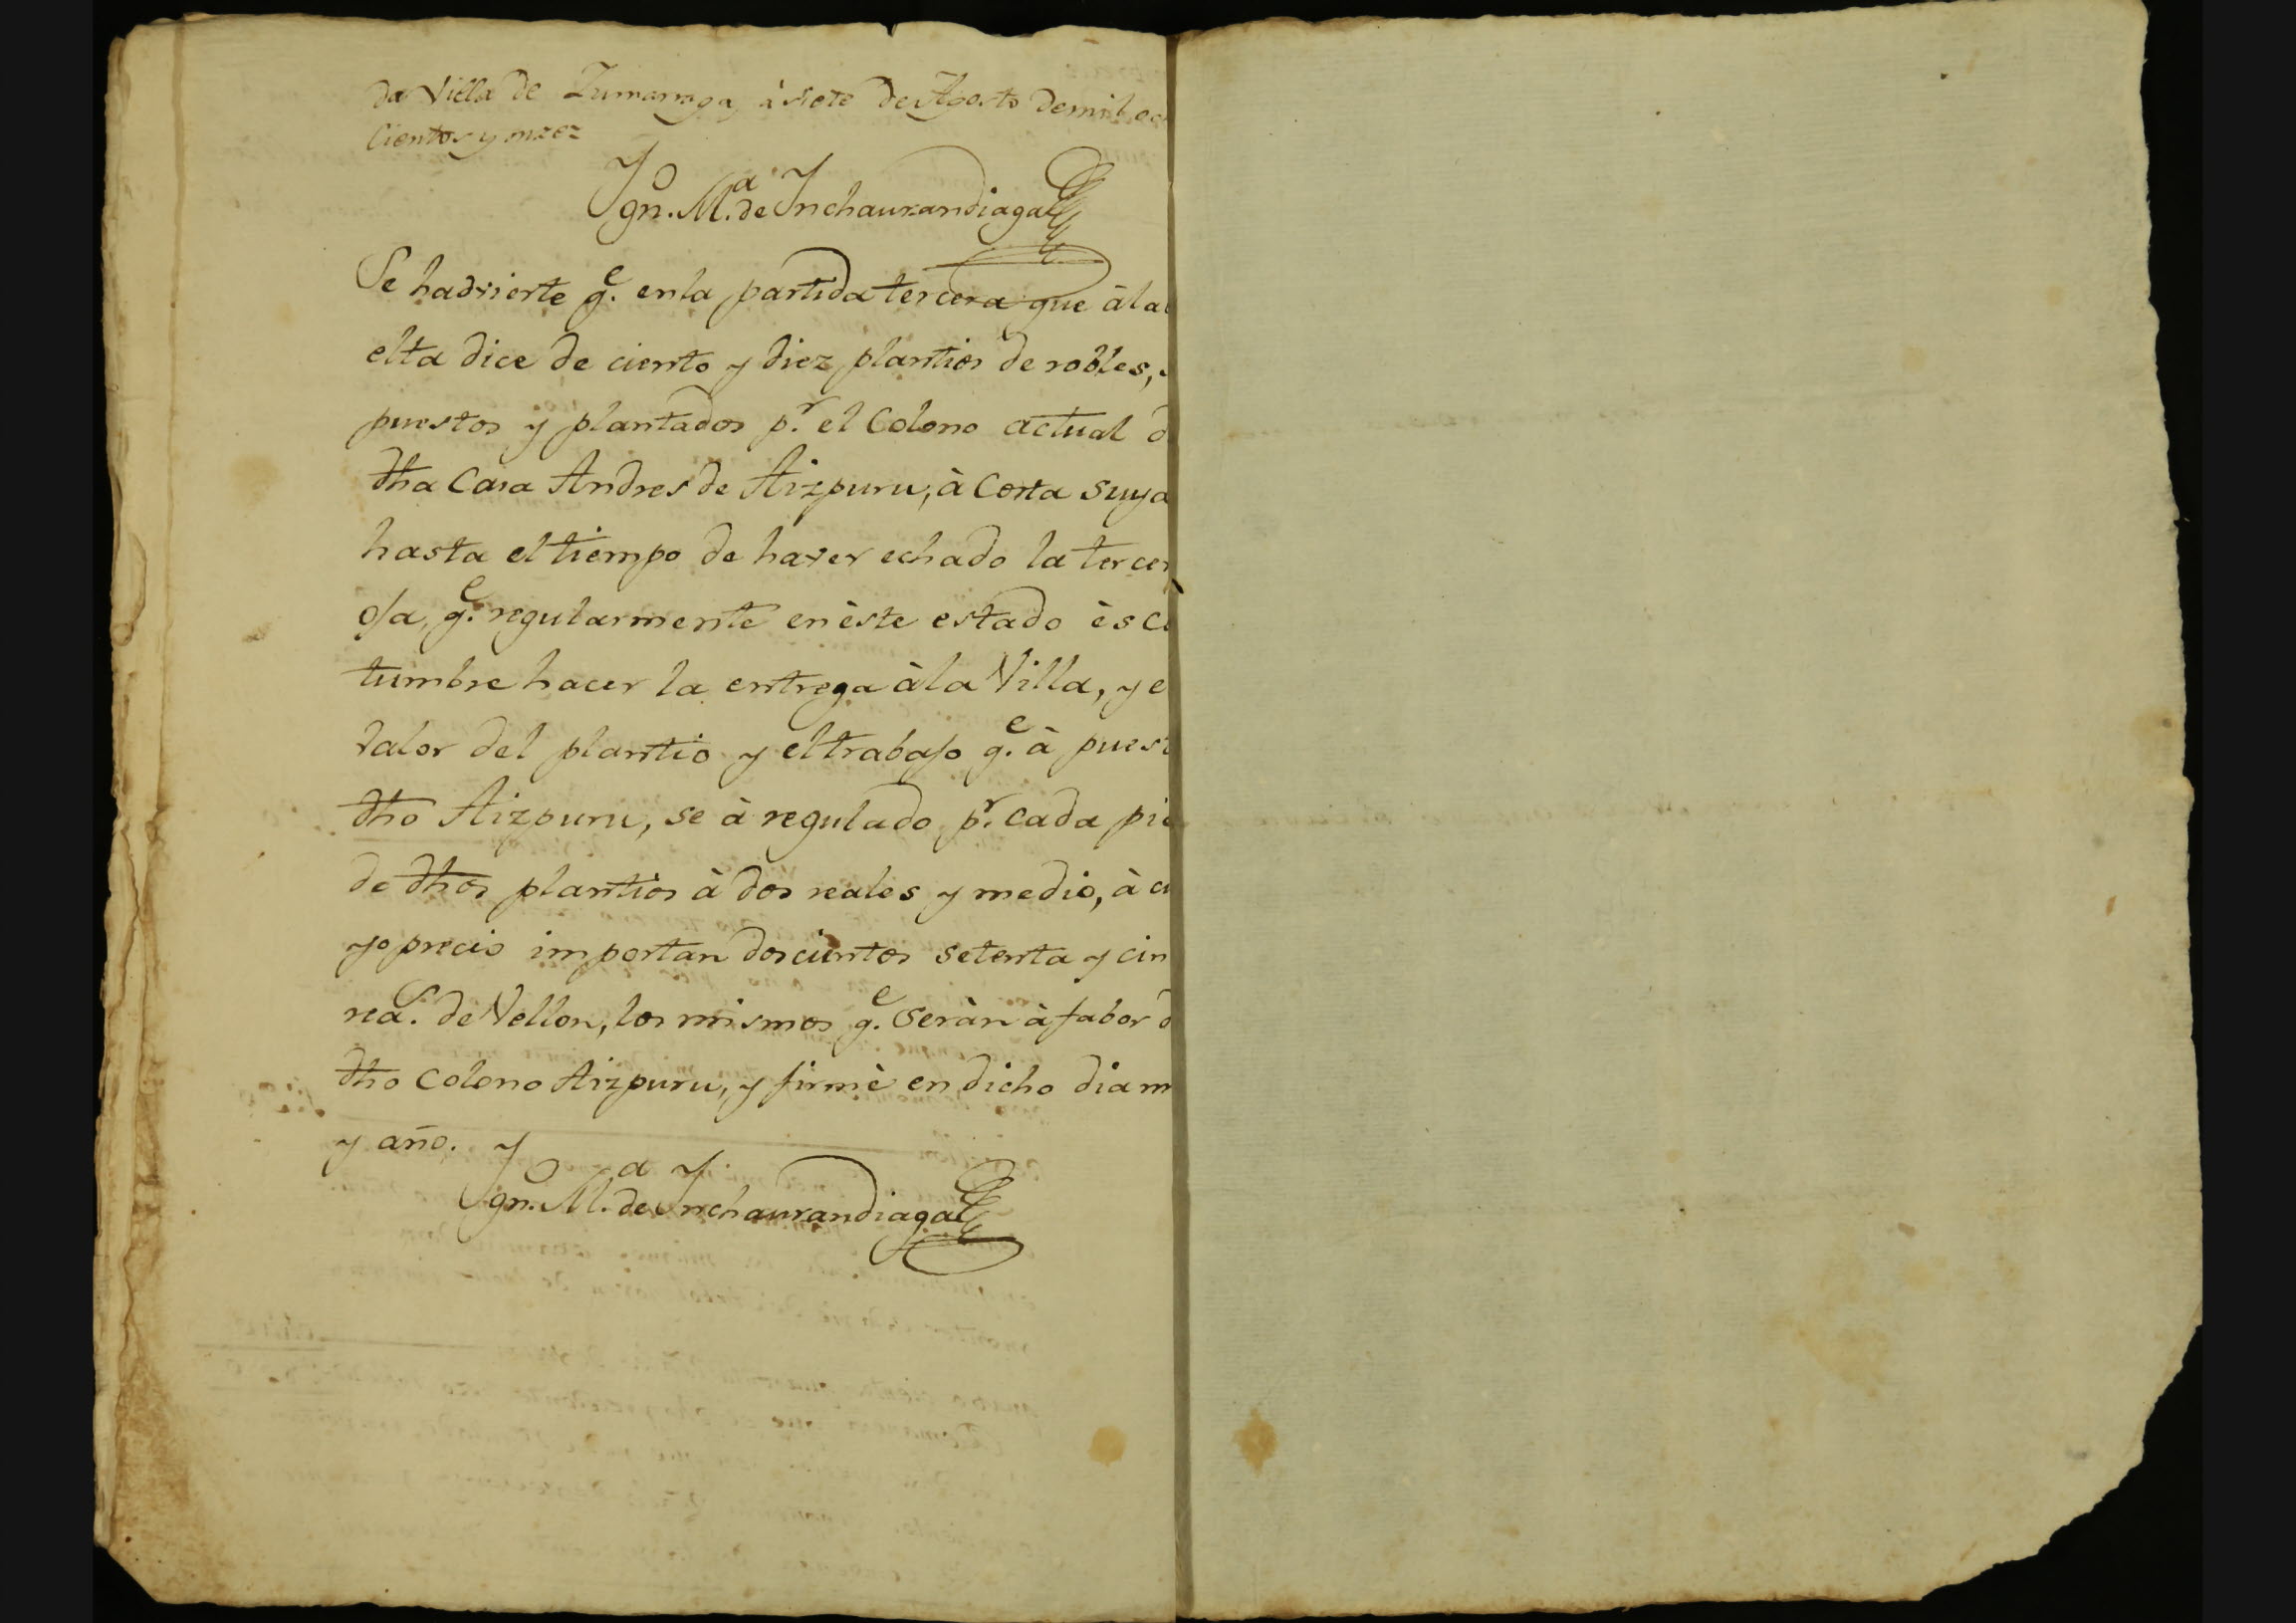 da Villa de Zumarraga, à siete de Agosto de mil oc
cientos y nuez
Ygn.º M.ª de Ynchaurandiaga
Se hadvierte q.e en la partida tercera que à la
elta dice de ciento y diez plantios de robles,
puestos y plantados p.r el Colono actual d
dha Casa Andres de Aizpuru, à Costa suya
hasta el tiempo de haver echado la tercer
oja, q.e regularmente en èste estado ès co
tumbre hacer la entrega à la Villa, y e
valor del plantio y el trabajo q.e à puest
dho Aizpuru, se à regulado p.r cada pie
de dhos plantios à dos reales y medio, à cu
yo precio importan doscientos setenta y cin
rea.s de Vellon, los mismos q.e seràn à fabor d
dho Colono Aizpuru, y firmè en dicho dia m
y año.
Ygn.º M.ª de Ynchaurandiaga